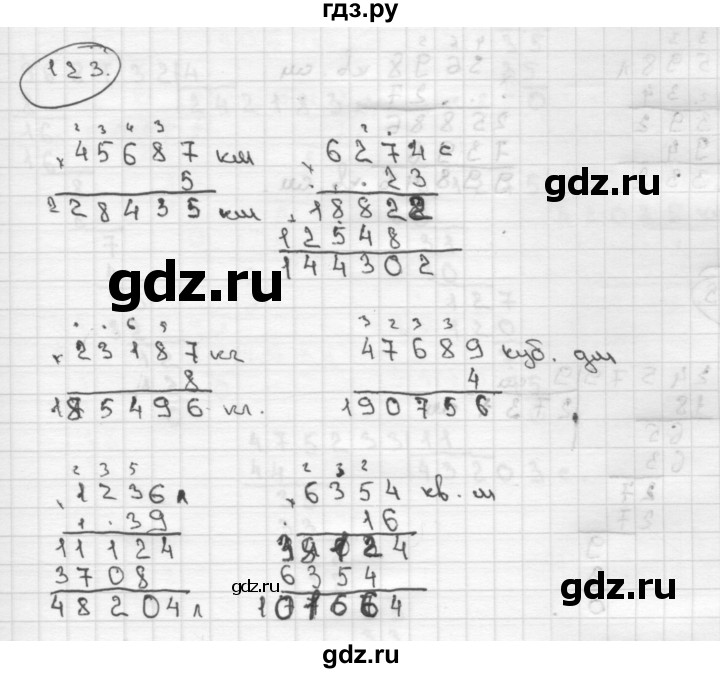 гдз.ру
123.
2 3 4 3
× 45687 км
5
228435 км
2
× 6274 с
23
18822
12548
144302
gdz.ru
gdz.ru
6 5
× 23187 кг
8
185496 кг.
3 2 3 3
47689 куб. дм
4
190756
2 3 5
× 1236 л
39
11124
3708
48204 л
2 3 2
× 6354 кв. м
16
6354
gdz.ru
gdz.ru
gdz.ru